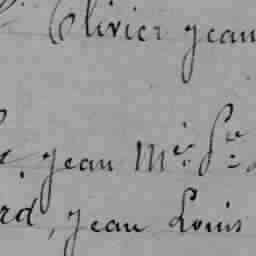 Olivier jean
, jean M.is
rd, jean Louis